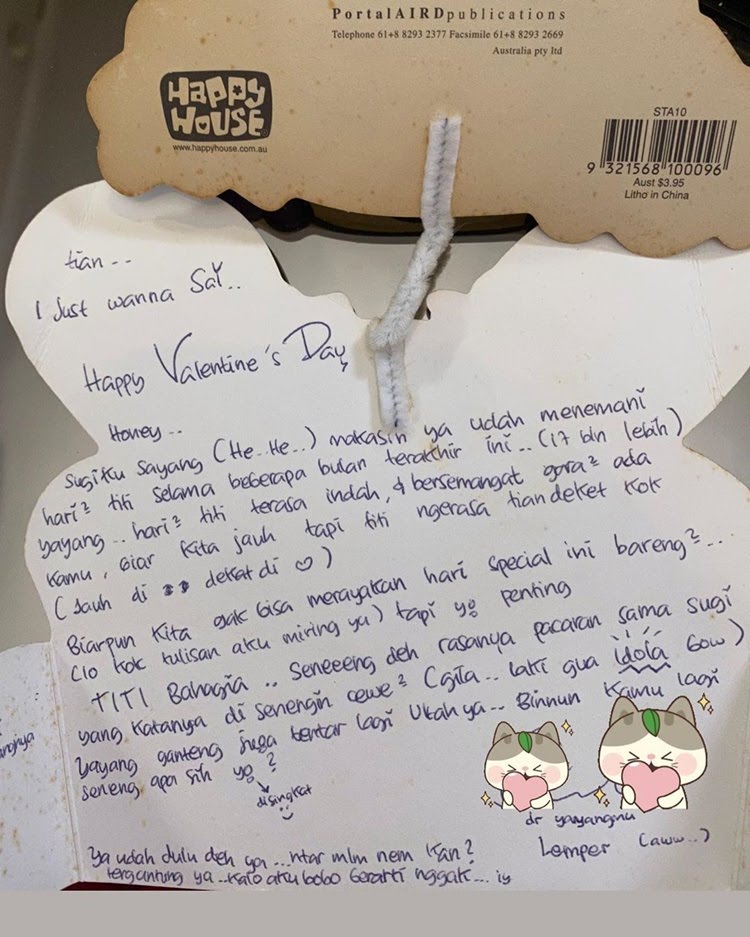 PortalAIRDpublications
Telephone 61+8 8293 2377 Facsimile 61+8 8293 2669
Australia pty ltd
HAPPY
HOUSE
www.happyhouse.com.au
STA10
9 321568 100096
Aust $3.95
Litho in China
tian --
I Just wanna SaY..
Happy Valentine's Day,
Honey --
Sugiku Sayang (He..He..) makasih ya udah menemani
hari² titi selama beberapa bulan terakhir ini... (17 bln lebih)
yayang .. hari² titi terasa indah, & bersemangat gara² ada
kamu, biar kita jauh tapi titi ngerasa tian deket kok
(Jauh di dekat di ♡)
Biarpun kita gak bisa merayakan hari special ini bareng²...
(lo kok tulisan aku miring ya) tapi yg penting
TITI Bahagia .. Seneeeng deh rasanya pacaran sama sugi
yang katanya di senengin cewe² (gila.. laki gua idola bow)
Yayang ganteng juga bentar lagi Ukah ya... Binnun kamu lagi
seneng apa sih yg?
disingkat
dr yayangmu
Lemper (aww..)
Ya udah dulu deh ya ...ntar mlm nem kan?
tergantung ya..kalo aku bobo berarti nggak... iy